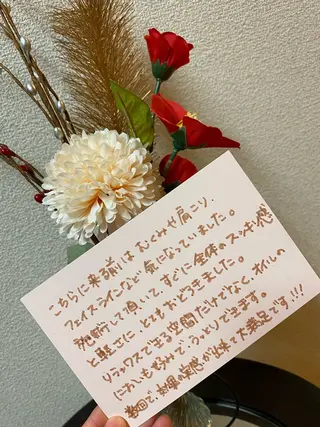 こちらに来る前はむくみや肩こり、
フェイスラインなど気になっていました。
施術して頂いて、すぐに全体のスッキリ感
と軽さに とてもおどろきました。
リラックスできる空間だけでなく、オイルの
においも好みで、うっとりできます。
毎回で、効果、実感が出来て大満足です!!!